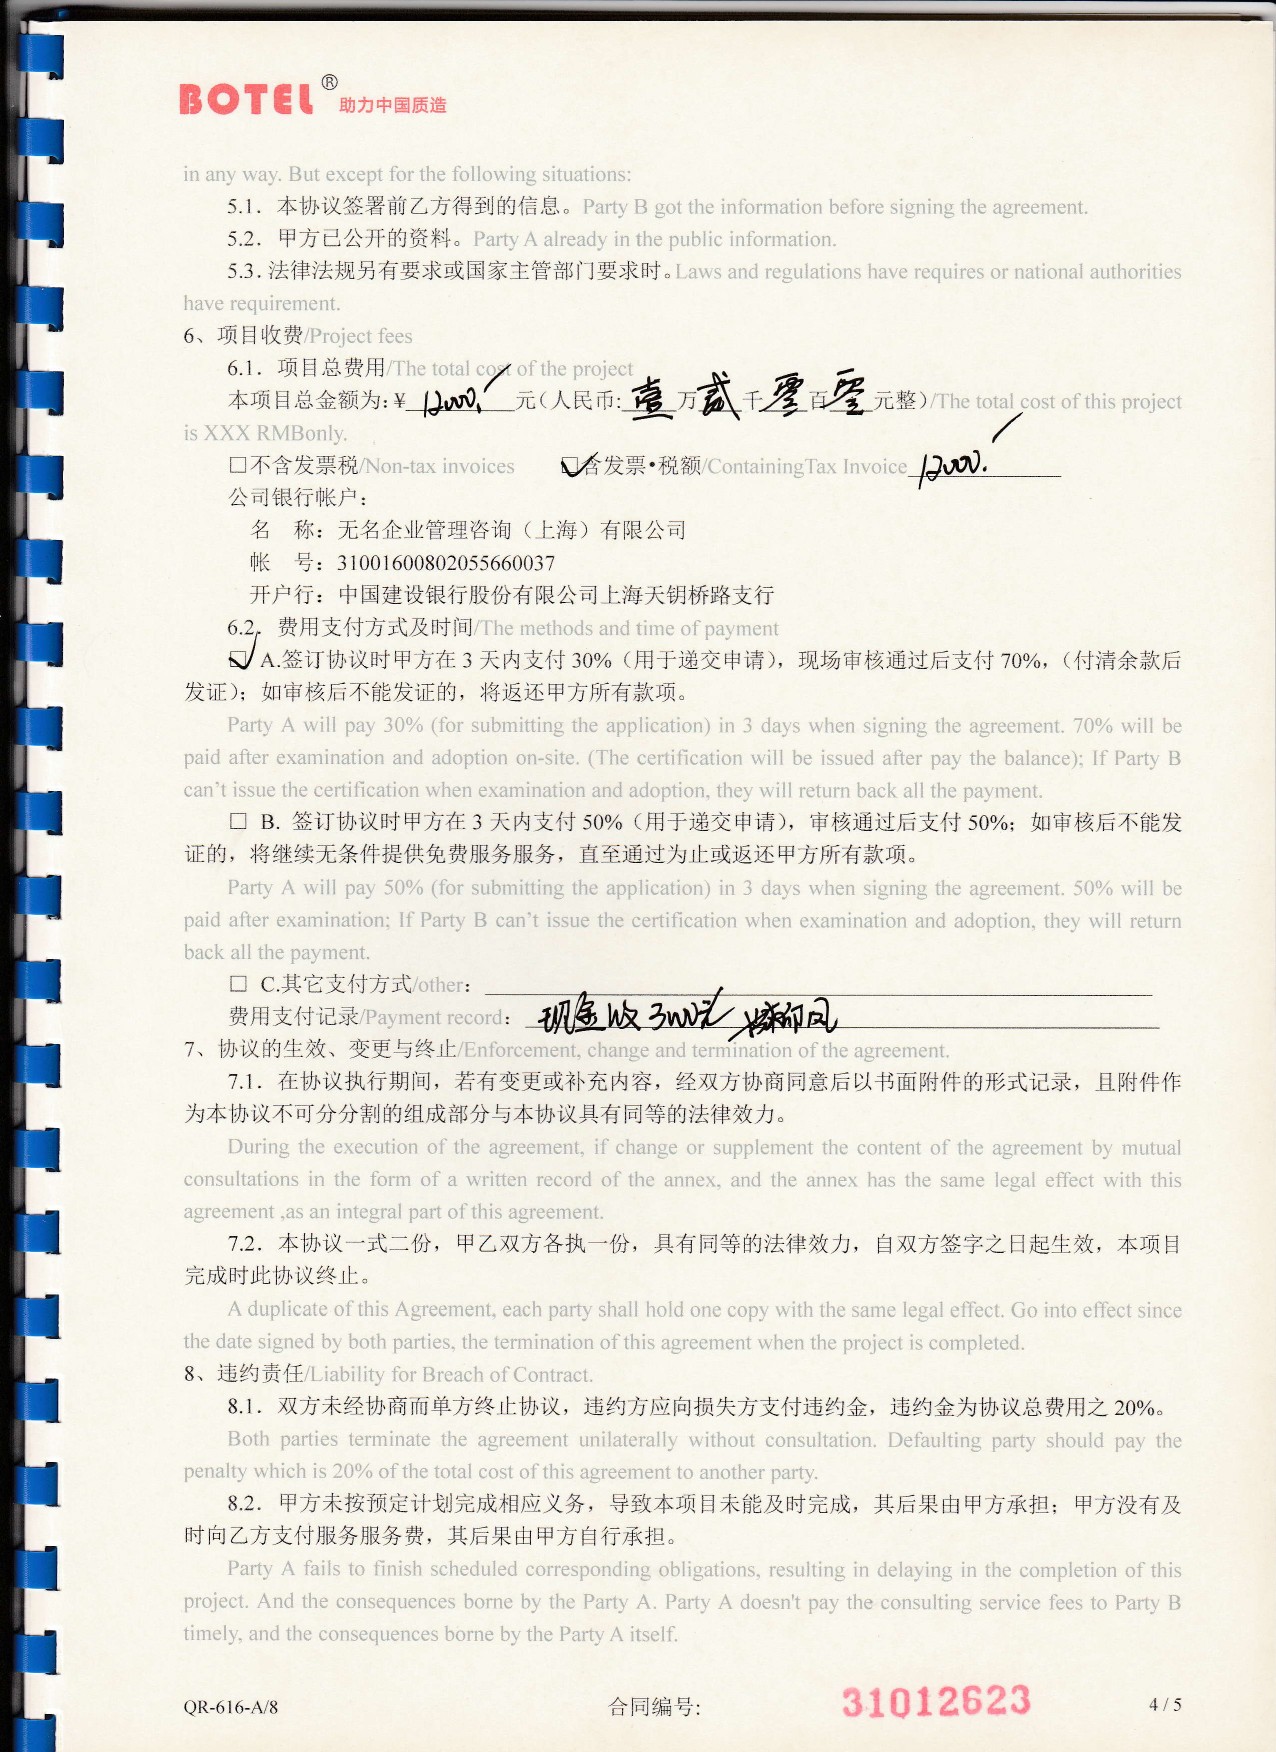 BOTEL® 助力中国质造
in any way. But except for the following situations:
5.1. 本协议签署前乙方得到的信息。Party B got the information before signing the agreement.
5.2. 甲方已公开的资料。Party A already in the public information.
5.3. 法律法规另有要求或国家主管部门要求时。Laws and regulations have requires or national authorities
have requirement.
6、项目收费/Project fees
6.1. 项目总费用/The total cost of the project
本项目总金额为:¥ 12000. 元(人民币: 壹 万 贰 千 零 百 零 元整)/The total cost of this project
is XXX RMBonly.
□不含发票税/Non-tax invoices ☑含发票•税额/ContainingTax Invoice 12000.
公司银行帐户:
名 称: 无名企业管理咨询（上海）有限公司
帐 号: 31001600802055660037
开户行: 中国建设银行股份有限公司上海天钥桥路支行
6.2. 费用支付方式及时间/The methods and time of payment
☑ A.签订协议时甲方在 3 天内支付 30%（用于递交申请），现场审核通过后支付 70%，（付清余款后
发证）；如审核后不能发证的，将返还甲方所有款项。
Party A will pay 30% (for submitting the application) in 3 days when signing the agreement. 70% will be
paid after examination and adoption on-site. (The certification will be issued after pay the balance); If Party B
can't issue the certification when examination and adoption, they will return back all the payment.
□ B. 签订协议时甲方在 3 天内支付 50%（用于递交申请），审核通过后支付 50%；如审核后不能发
证的，将继续无条件提供免费服务服务，直至通过为止或返还甲方所有款项。
Party A will pay 50% (for submitting the application) in 3 days when signing the agreement. 50% will be
paid after examination; If Party B can't issue the certification when examination and adoption, they will return
back all the payment.
□ C.其它支付方式/other:
费用支付记录/Payment record: 现金收3000元
7、协议的生效、变更与终止/Enforcement, change and termination of the agreement.
7.1. 在协议执行期间，若有变更或补充内容，经双方协商同意后以书面附件的形式记录，且附件作
为本协议不可分分割的组成部分与本协议具有同等的法律效力。
During the execution of the agreement, if change or supplement the content of the agreement by mutual
consultations in the form of a written record of the annex, and the annex has the same legal effect with this
agreement ,as an integral part of this agreement.
7.2. 本协议一式二份，甲乙双方各执一份，具有同等的法律效力，自双方签字之日起生效，本项目
完成时此协议终止。
A duplicate of this Agreement, each party shall hold one copy with the same legal effect. Go into effect since
the date signed by both parties, the termination of this agreement when the project is completed.
8、违约责任/Liability for Breach of Contract.
8.1. 双方未经协商而单方终止协议，违约方应向损失方支付违约金，违约金为协议总费用之 20%。
Both parties terminate the agreement unilaterally without consultation. Defaulting party should pay the
penalty which is 20% of the total cost of this agreement to another party.
8.2. 甲方未按预定计划完成相应义务，导致本项目未能及时完成，其后果由甲方承担；甲方没有及
时向乙方支付服务服务费，其后果由甲方自行承担。
Party A fails to finish scheduled corresponding obligations, resulting in delaying in the completion of this
project. And the consequences borne by the Party A. Party A doesn't pay the consulting service fees to Party B
timely, and the consequences borne by the Party A itself.
QR-616-A/8 合同编号: 31012623 4 / 5